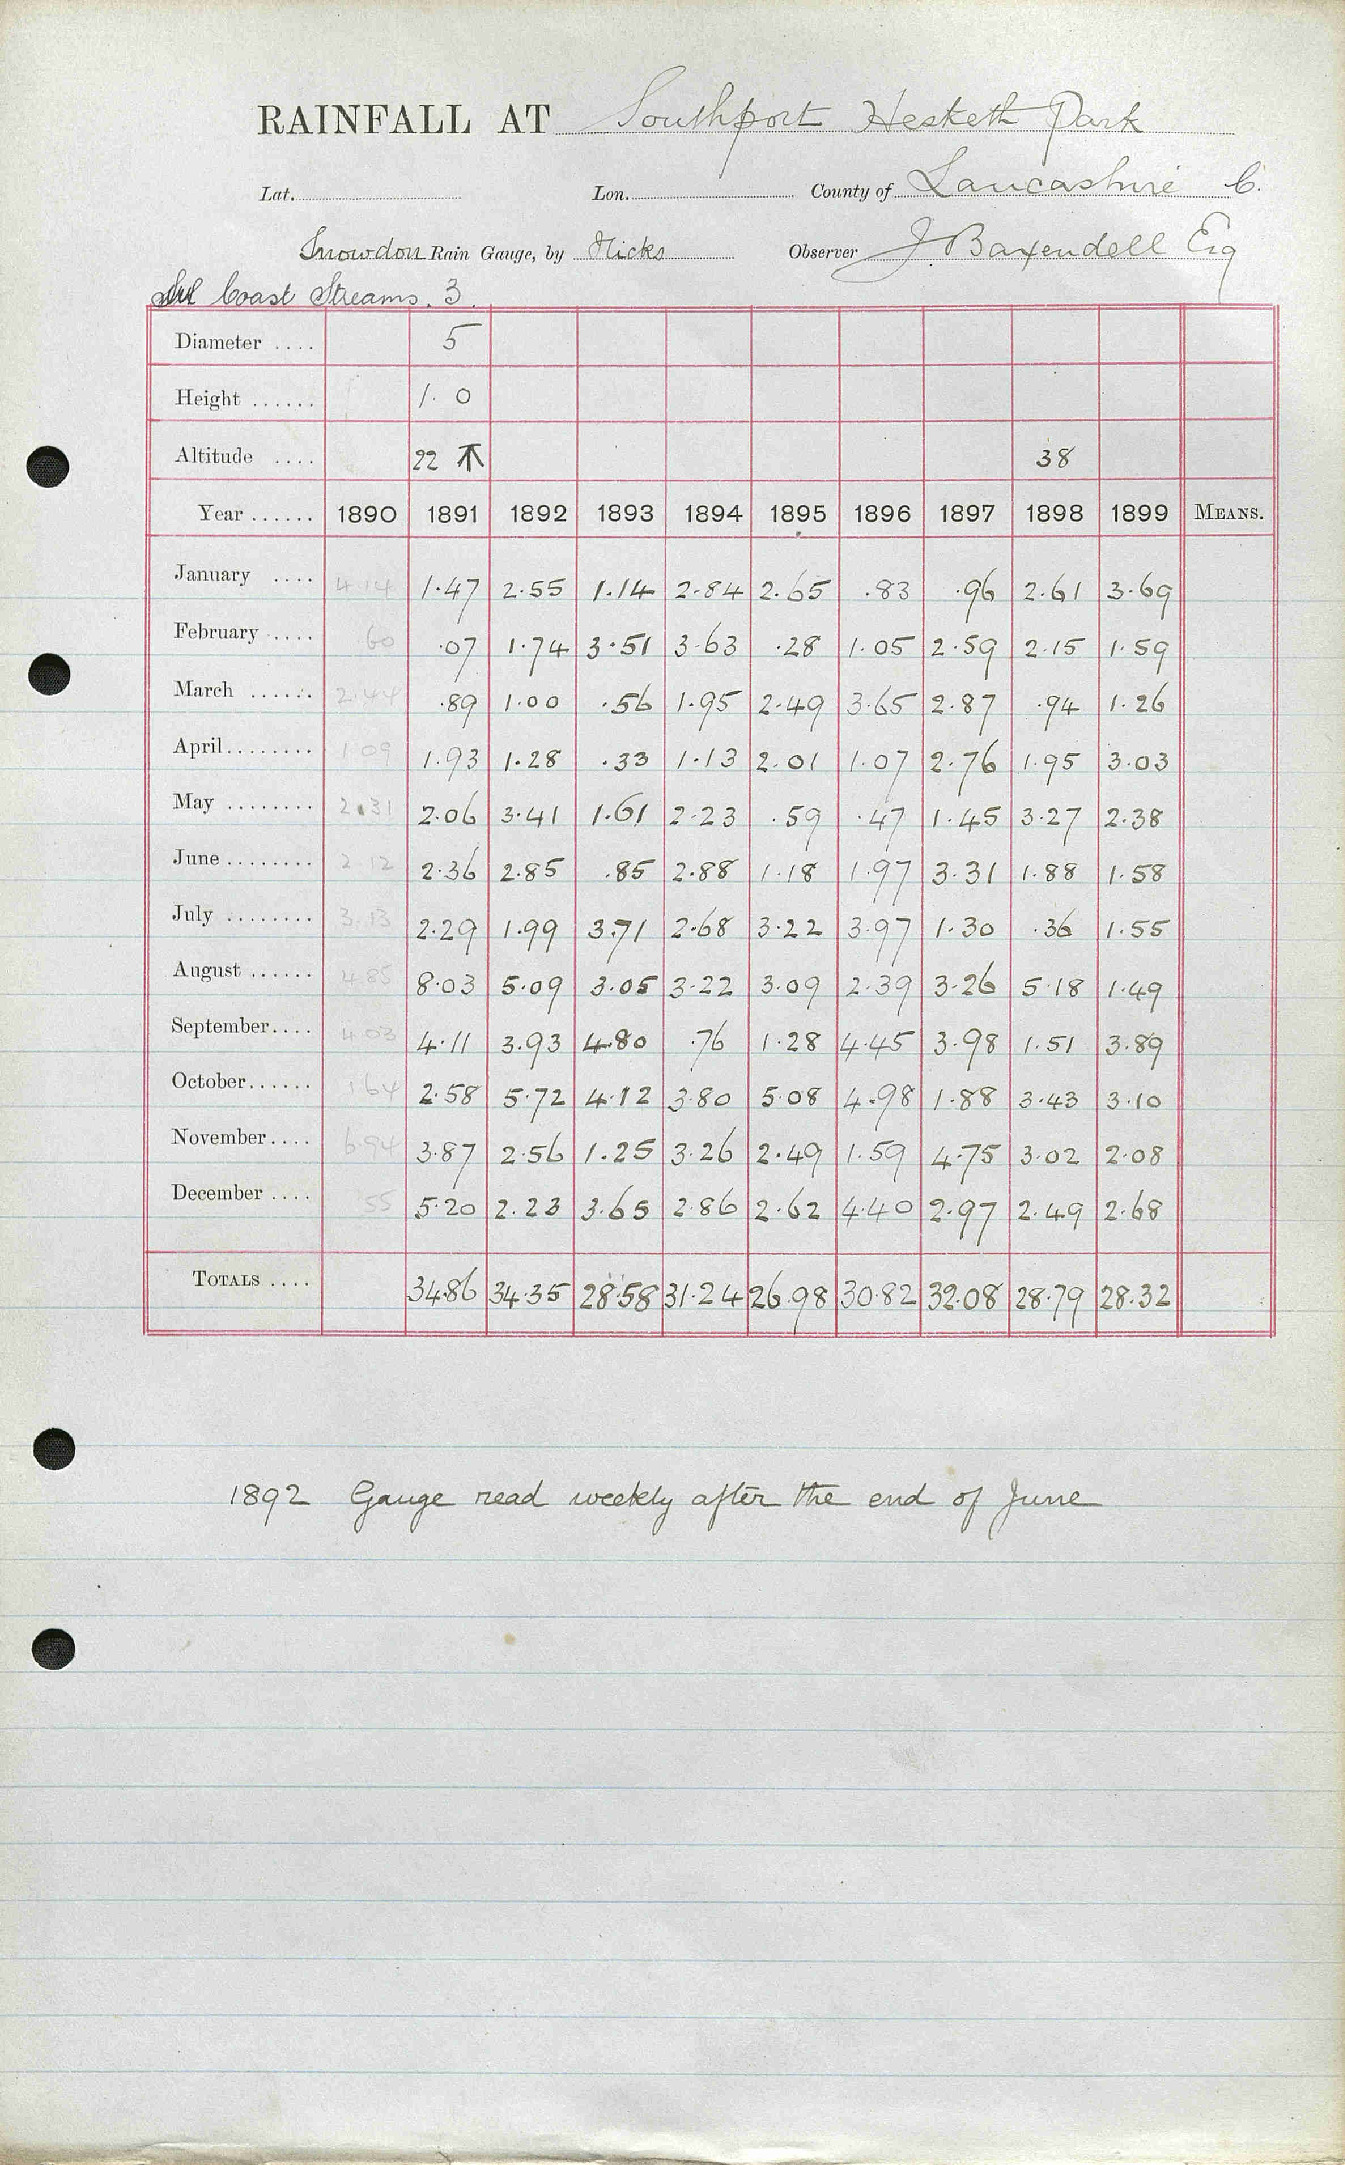 RAINFALL AT Southport Hesketh Park
Lat. Lon. County of Lancashire C.
Snowdon Rain Gauge, by Hicks Observer J. Baxendell Esq
Coast Streams. 3.
Diameter .... 5
Height ...... 1. 0
Altitude .... 22 38
Year ...... 1890 1891 1892 1893 1894 1895 1896 1897 1898 1899 MEANS.
January .... 4.14 1.47 2.55 1.14 2.84 2.65 .83 .96 2.61 3.69
February .... 60 .07 1.74 3.51 3.63 .28 1.05 2.59 2.15 1.59
March ...... 2.44 .89 1.00 .56 1.95 2.49 3.65 2.87 .94 1.26
April ........ 1 09 1.93 1.28 .33 1.13 2.01 1.07 2.76 1.95 3.03
May ........ 2.31 2.06 3.41 1.61 2.23 .59 .47 1.45 3.27 2.38
June ........ 2 12 2.36 2.85 .85 2.88 1.18 1.97 3.31 1.88 1.58
July ........ 3.13 2.29 1.99 3.71 2.68 3.22 3.97 1.30 .36 1.55
August ...... 4 85 8.03 5.09 3.05 3.22 3.09 2.39 3.26 5.18 1.49
September .... 4.03 4.11 3.93 4.80 .76 1.28 4.45 3.98 1.51 3.89
October ...... 1 64 2.58 5.72 4.12 3.80 5.08 4.98 1.88 3.43 3.10
November .... 6.94 3.87 2.56 1.25 3.26 2.49 1.59 4.75 3.02 2.08
December .... 55 5.20 2.23 3.65 2.86 2.62 4.40 2.97 2.49 2.68
TOTALS .... 34.86 34.35 28.58 31.24 26.98 30.82 32.08 28.79 28.32
1892 Gauge read weekly after the end of June